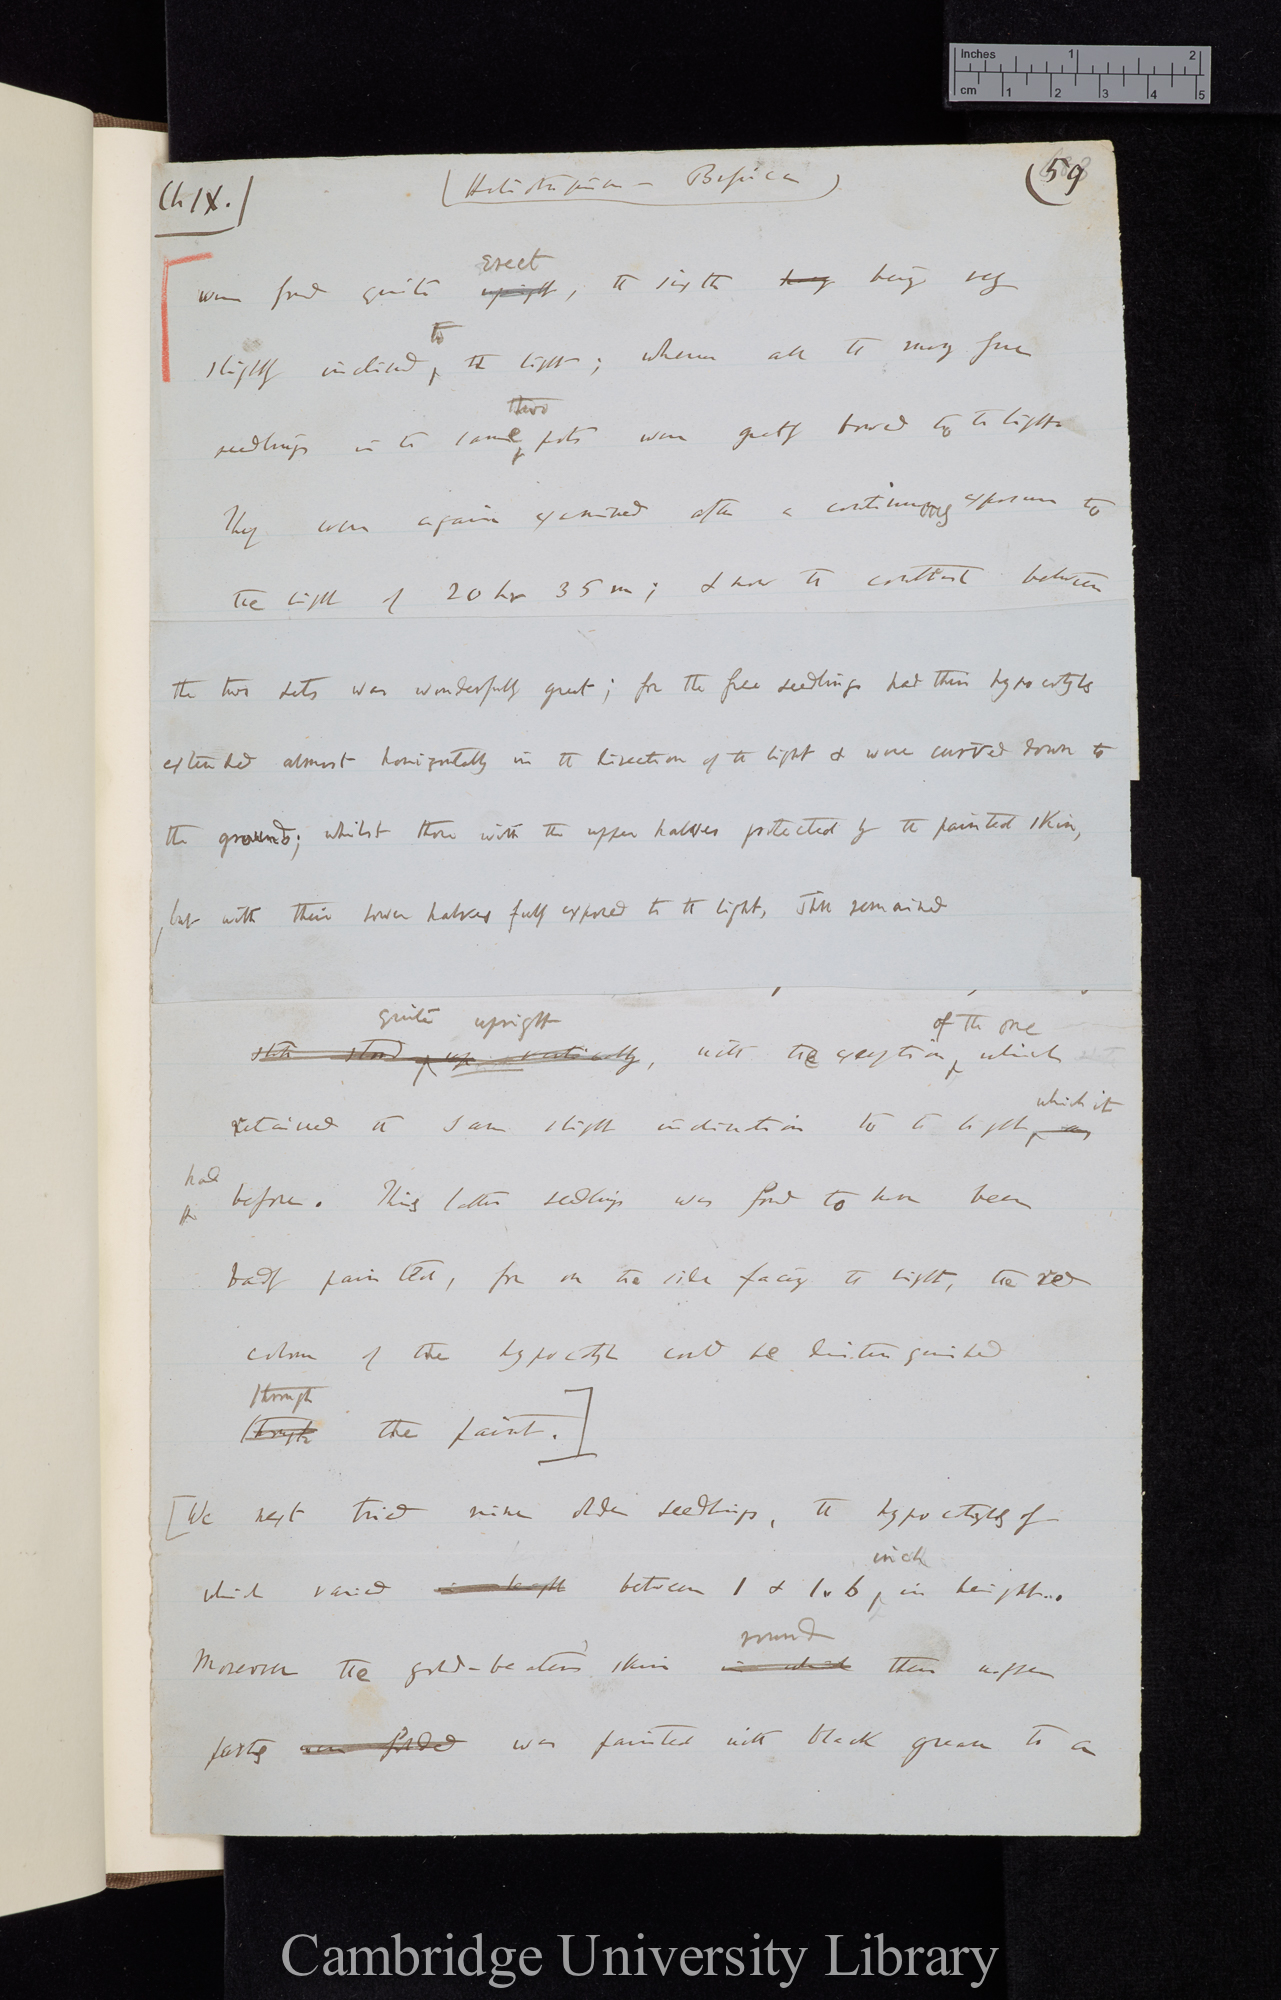 Inches 1 2
cm 1 2 3 4 5
Ch IX.
(Heliotropism – Brassica)
(59
erect
were found quite upright, the sixth being being very
to
slightly inclined the light; whereas all the many free
two
seedlings in the same pots were greatly bowed to the light.
They were again examined after a continuous exposure to
the light of 20 hr 35 m; & now the contrast between
the two sets was wonderfully great; for the free seedlings had their hypocotyls
extended almost horizontally in the direction of the light & were curved down to
the ground; whilst those with the upper halves protected by the painted skin,
but with their lower halves fully exposed to the light, still remained
quite upright of the one
still stood up vertically, with the exception which
which it
retained the same slight inclination to the light, as
had
the before. This latter seedling was found to have been
badly painted, for on the side facing the light, the red
colour of the hypocotyl could be distinguished
through
through the paint.]
[We next tried nine older seedlings, the hypocotyls of
inch
which varied in length between 1 & 1.6 in height.
round
Moreover the gold-beaters' skin in which their upper
parts were folded was painted with black grease to a
Cambridge University Library